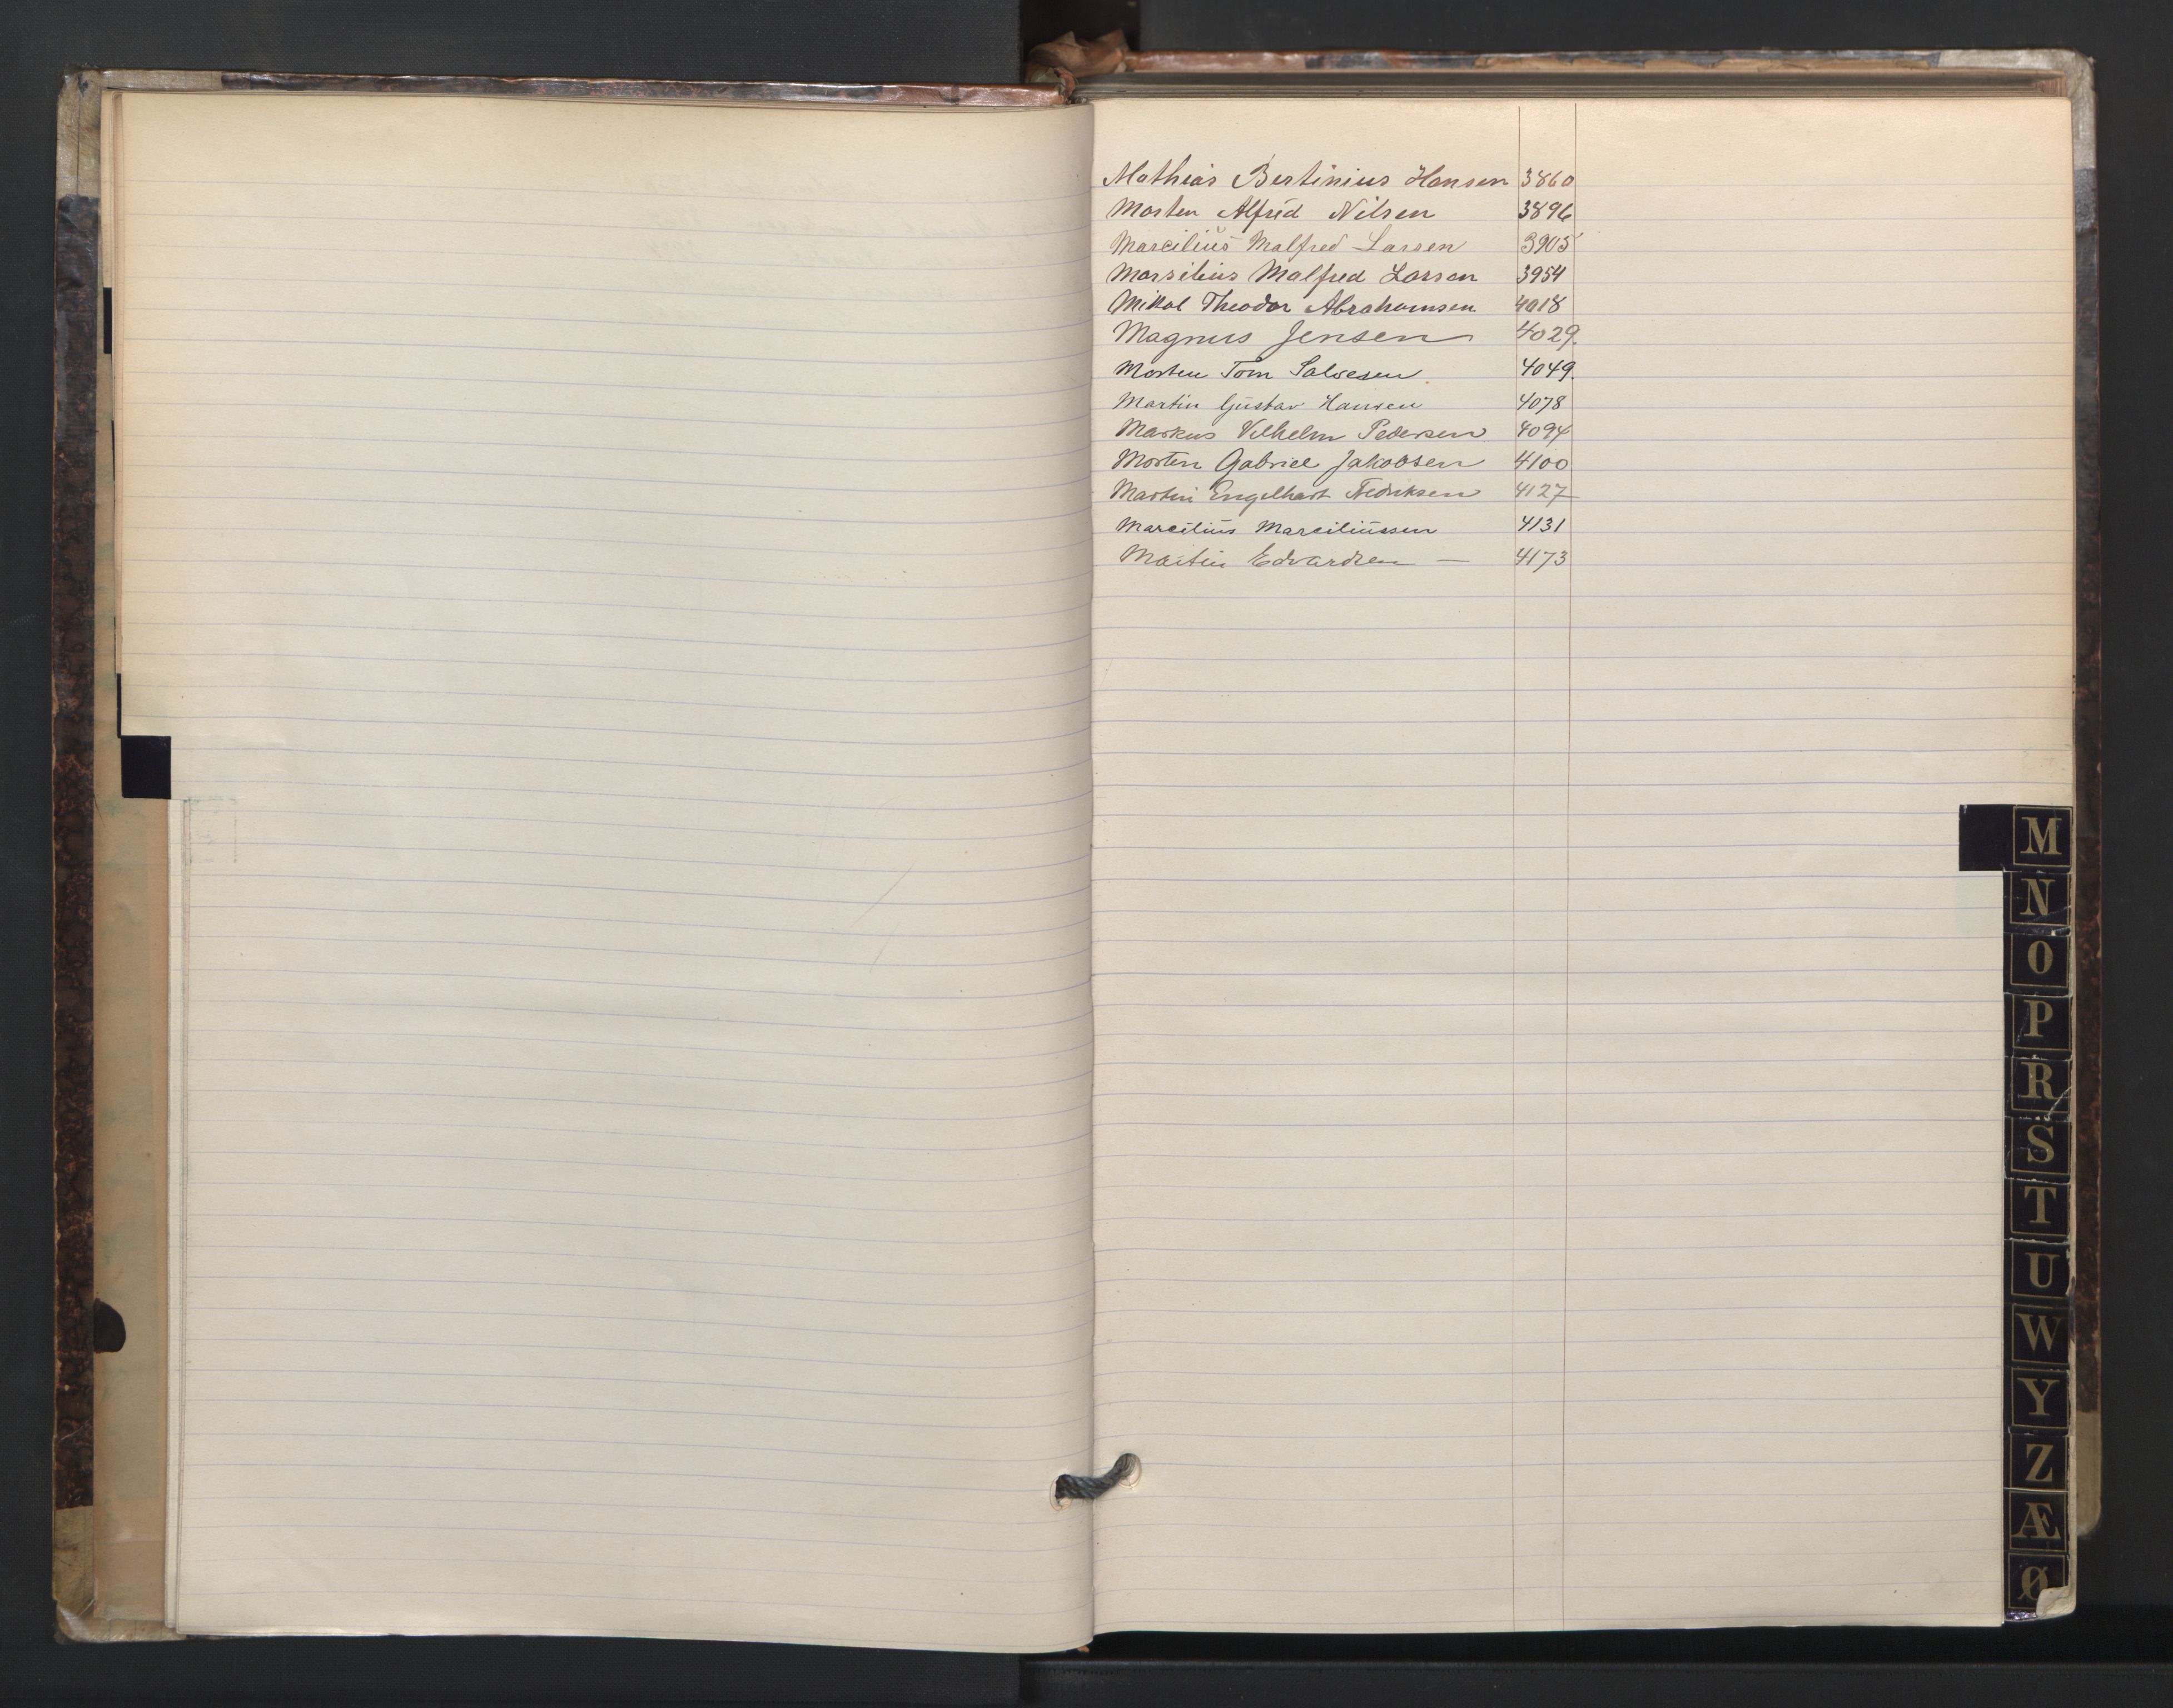 Mathias Bertinius Hansen 3860
Morten Alfred Nilsen 3896
Marcilius Malfred Larsen 3905
Marsilius Malfred Larsen 3954
Mikal Theodor Abrahamsen 4018
Magnus Jensen 4029.
Morten Tom Salvesen 4049.
Martin Gustav Hansen 4078
Markus Vilhelm Pedersen 4094
Morten Gabriel Jakobsen 4100
Martin Engelhart Fredriksen 4127
Marcilius Marciliussen 4131
Martin Edvardsen — 4173
M
N
O
P
R
S
T
U
W
Y
Z
Æ
Ø